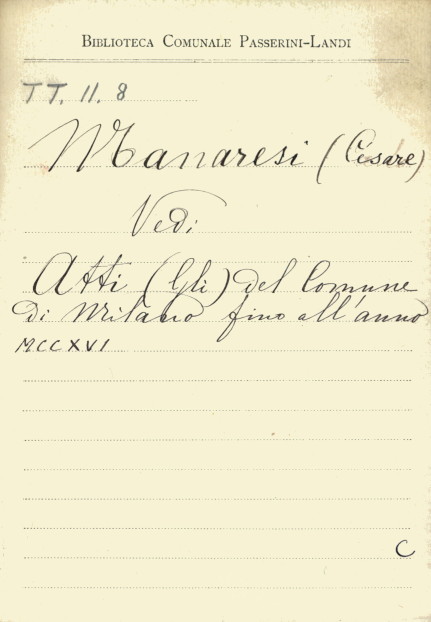 BIBLIOTECA COMUNALE PASSERINI-LANDI
TT. 11. 8
Manaresi (Cesare)
Vedi
Atti (Gli) del Comune
di Milano fino all'anno
MCCXVI
C